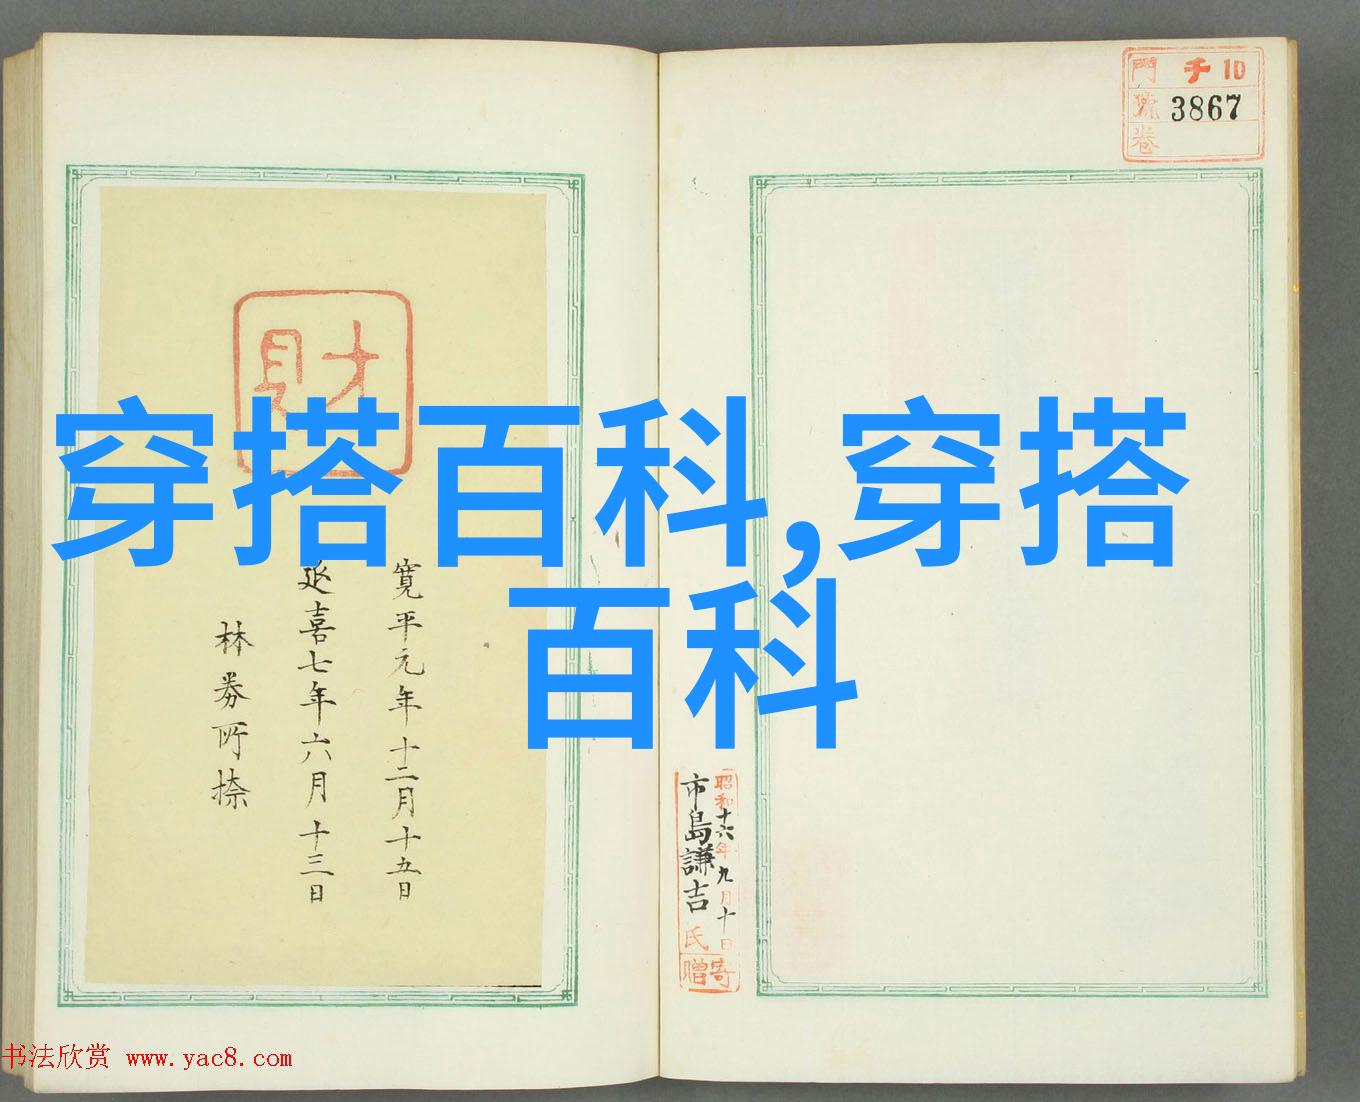 門 チ 10
號 3867
卷
財
穿搭百科,穿搭
百科
寛平元年十二月十五日
延喜七年六月十三日
林券所捺
昭和十六年九月十日
市島謙吉氏寄贈
书法欣赏 www.yac8.com